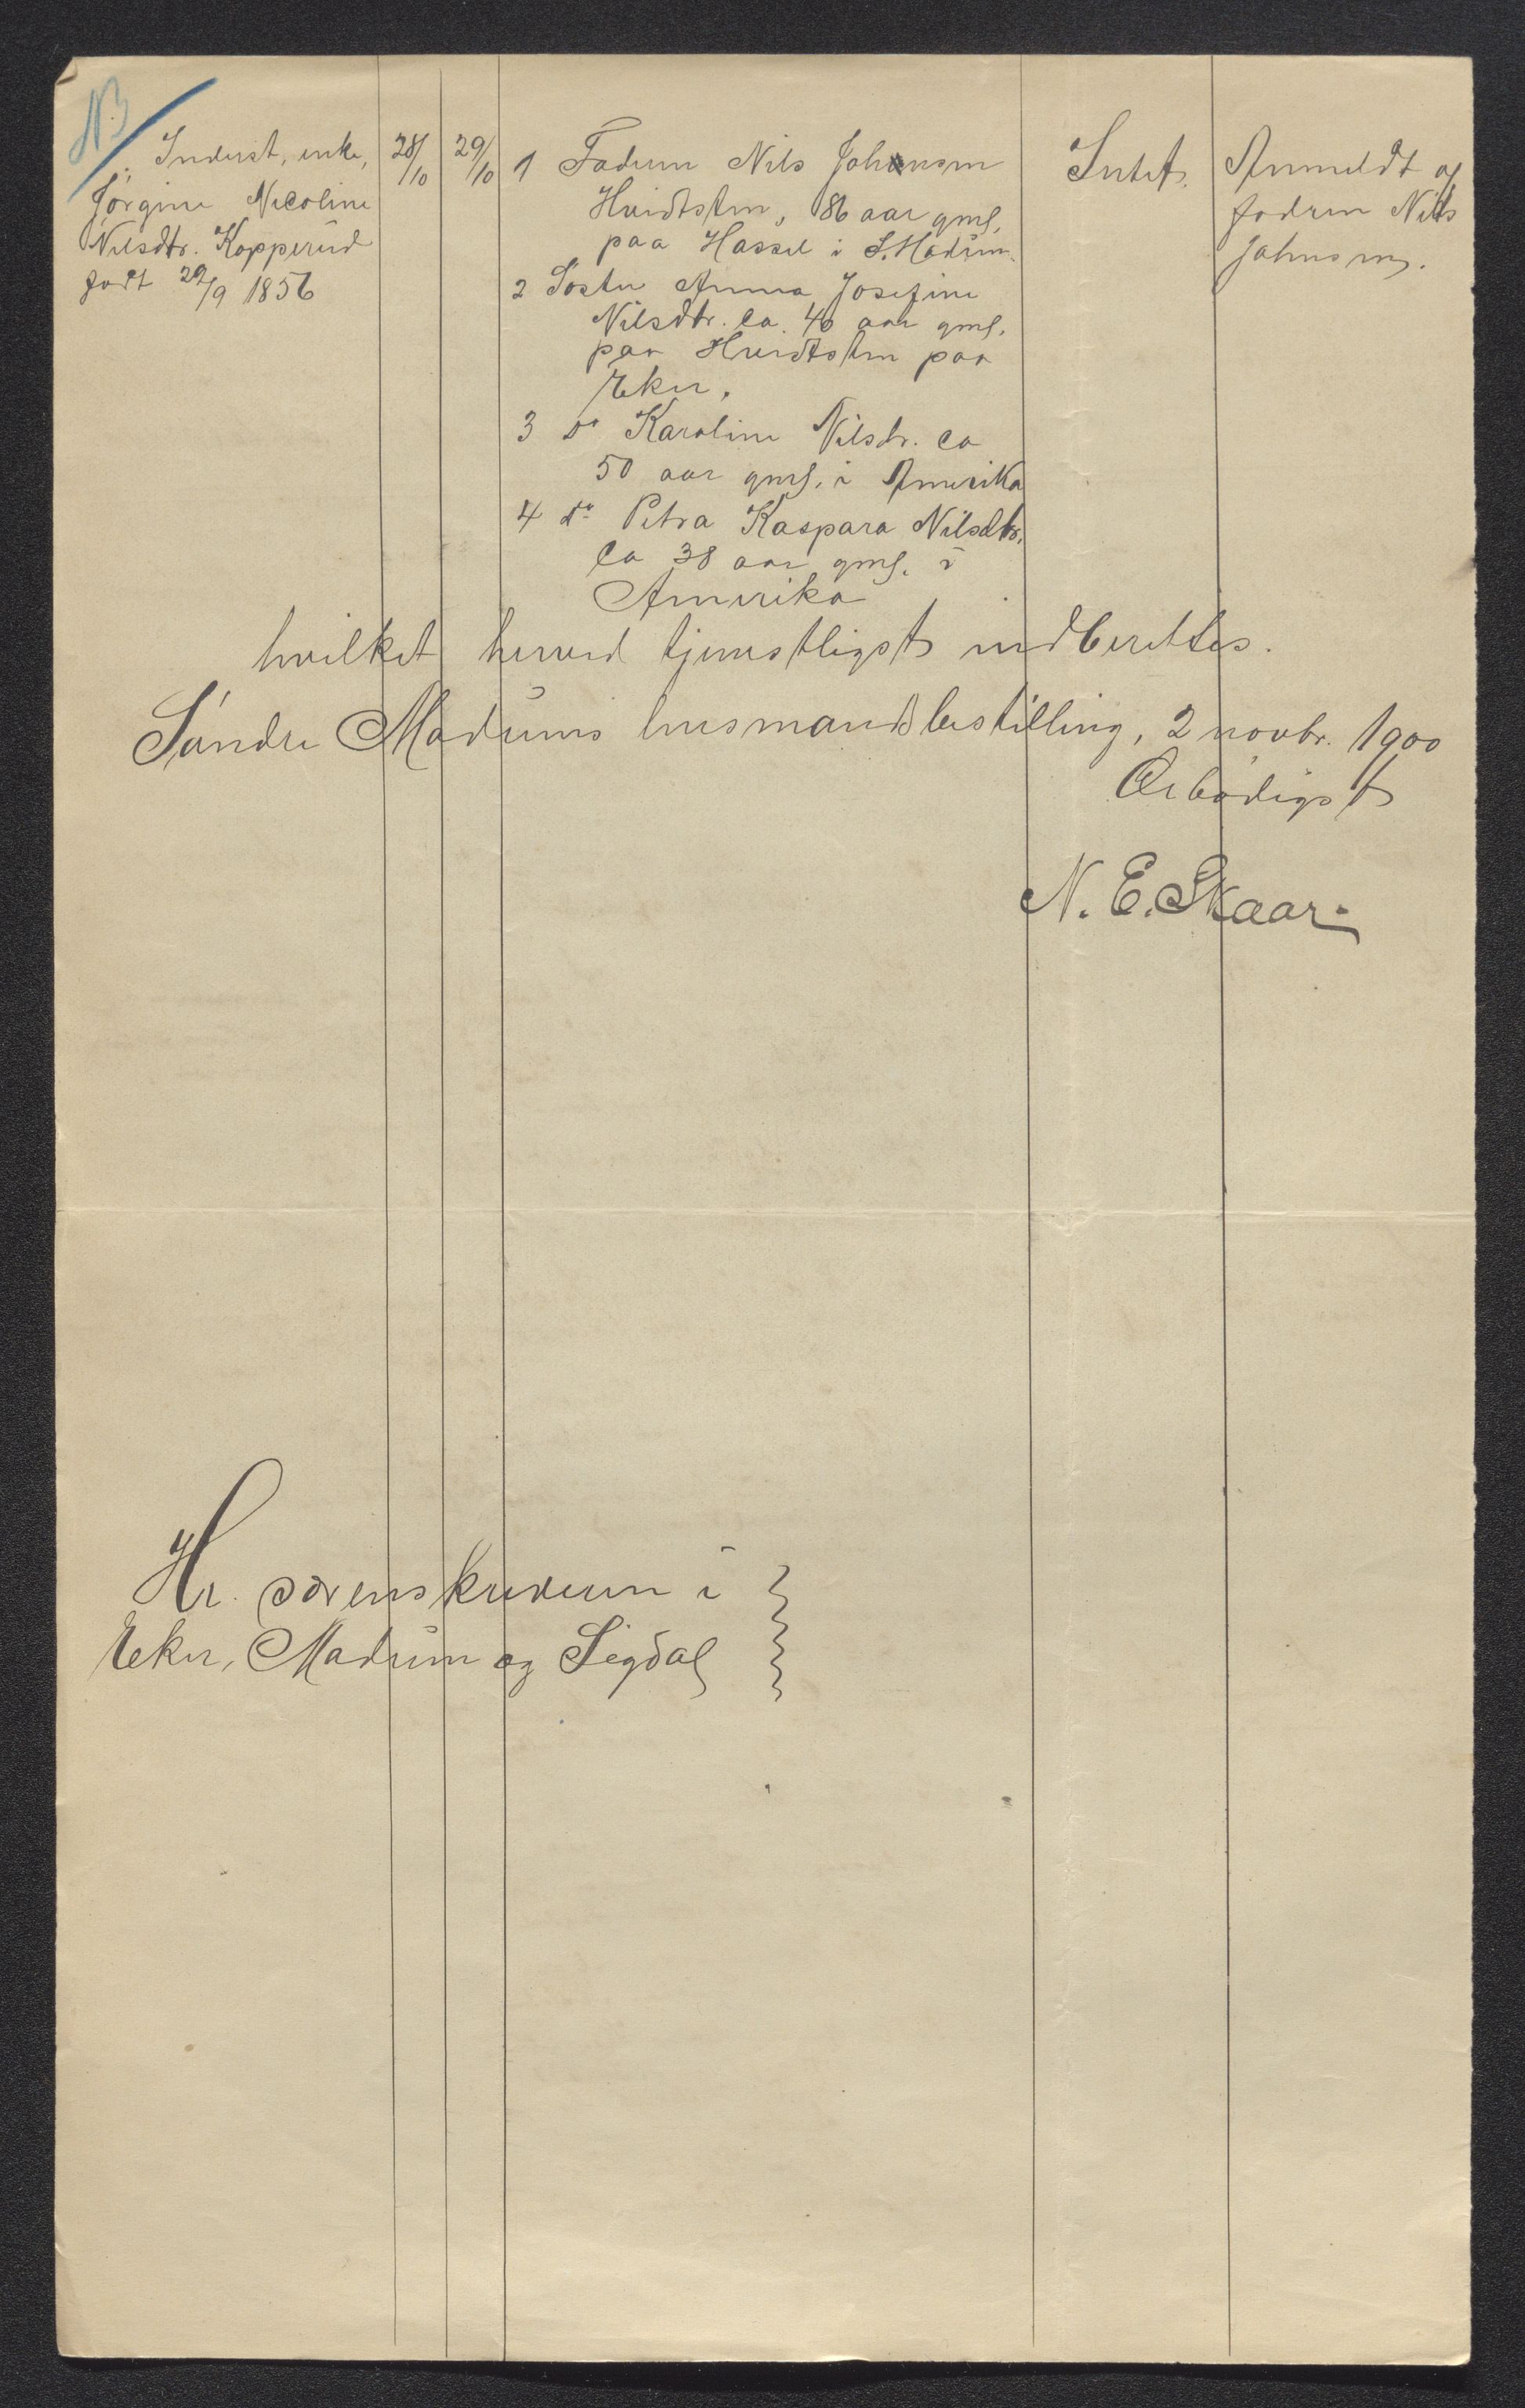 NB
Inderst, enke,
Jörgine Nicoline
Nilsdtr. Kopperud
født 29/9 1856
28/10
29/10
1 Faderen Nils Johnsen
Hvidtsten, 86 aar gml,
paa Hassel i S. Modum.
2 Søster Anna Josefine
Nilsdtr. ca. 40 aar gml.
paa Hvidtsten paa
Eker.
3 do Karoline Nilsdr. ca
50 aar gml. i Amerika
4 do Petra Kaspara Nilsdtr.
ca 38 aar gml. i
Amerika
Intet.
Anmeldt af
fadren Nils
Johnsen.
hvilket herved tjenstligst indberettes.
Söndre Modums lensmandsbestilling, 2 novbr. 1900
Ærbødigst
N. E. Skaar.
Hr. sorenskriveren i
Eker, Modum og Sigdal